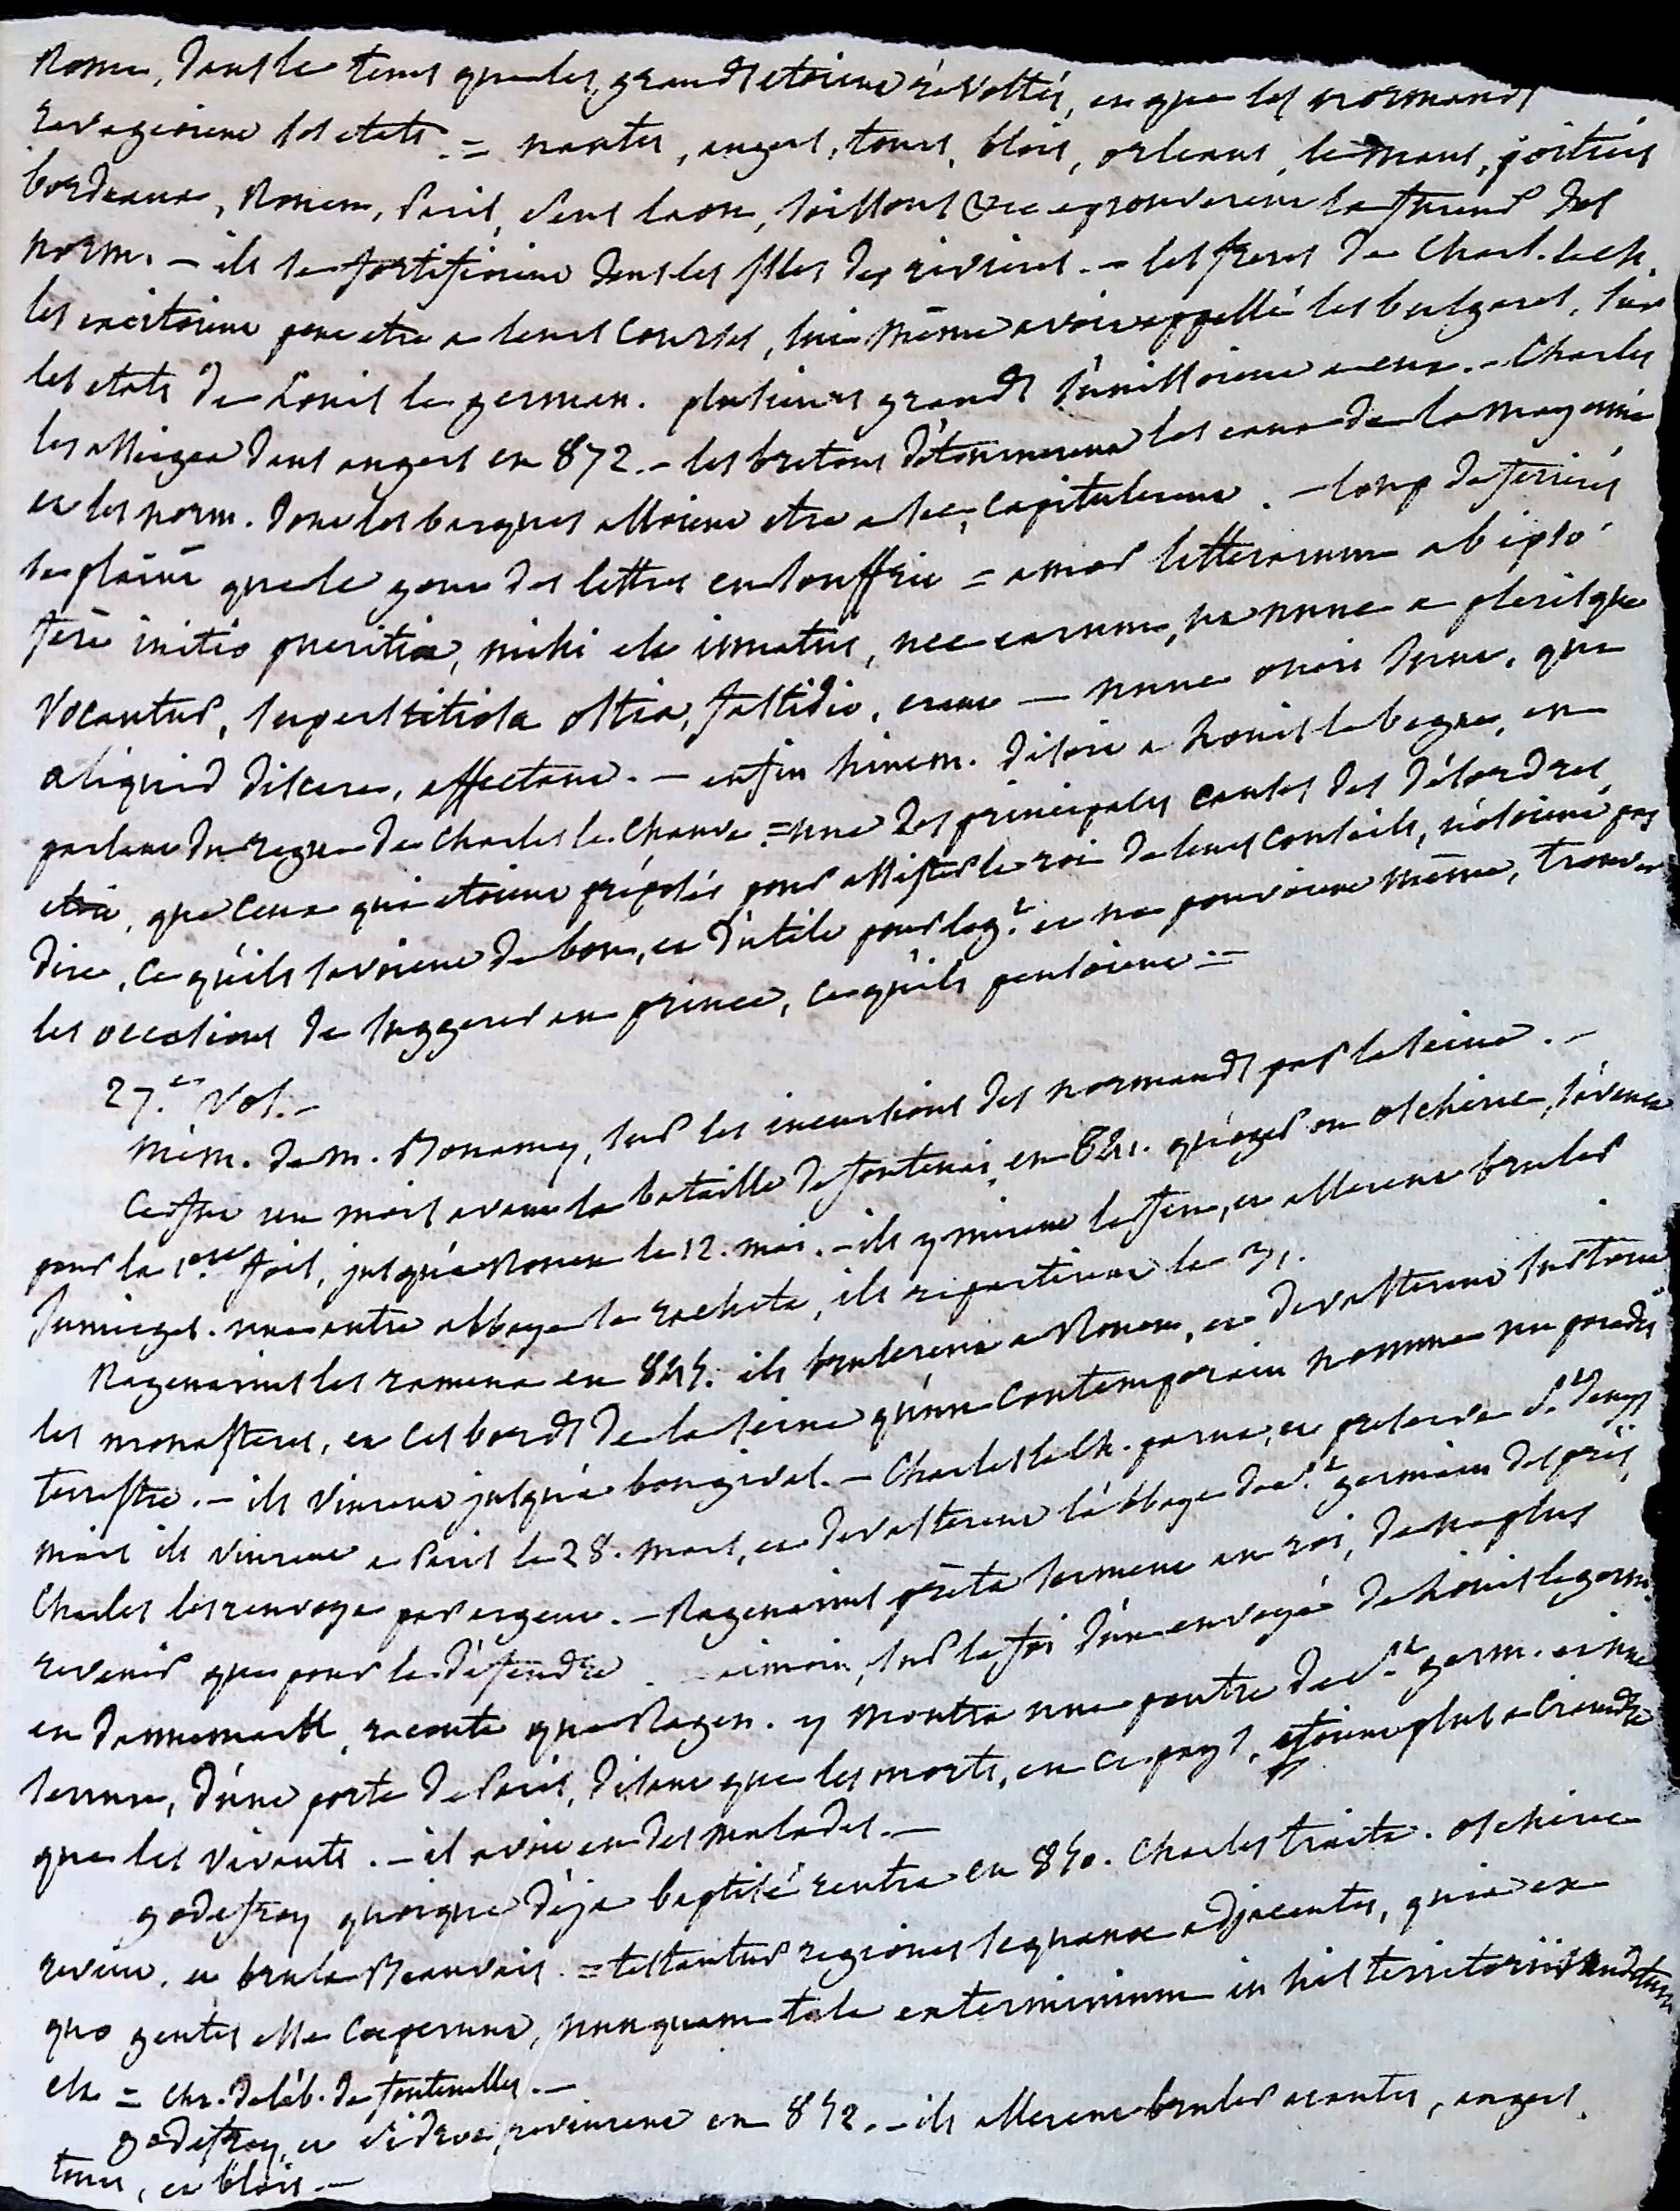 Rome, dans le tems que les grands etoient révoltés, et que les normands
ravageoient ses etats. = nantes, angers, tours, blois, orleans, le mans, poitiers
bordeaux, Rouen, Paris, sens laon, soissons &c eprouverent la fureur des
norm. – ils se fortifioient dans les isles des rivieres. – les freres de Charl. le ch.
les excitoient peut etre a leurs courses, lui même avoit appellé les bulgares, sur
les etats de Louis le german. plusieurs grands s'unissoient a eux. – Charles
les assiegea dans angers en 872. – les bretons détournerent les eaux de la mayenne
et les norm. dont les barques alloient etre a sec, capitulerent. – loup de ferrieres
se plaint que le gout des lettres en souffrit = amor litterarum ab ipso
fere initio pueritiae, mihi est innatus, nec earum, ut nunc a plerisque
vocantur, superstitiosa otia, fastidio, erant — nunc oneri sunt, qui
aliquid discere, affectant. — enfin hincm. disoit a Louis le begue, en
parlant du regne de Charles le Chauve = une des principales causes des désordres
etoit, que ceux qui etoient préposés pour assister le roi de leurs conseils, n'osoient pas
dire, ce qu'ils savoient de bon, et d'utile pour le g.t et ne pouvoient même, trouver
les occasions de suggerer au prince, ce qu'ils pensoient =
27.e vol. –
mém. de m. Bonamy, sur les incursions des normands par la seine. –
Ce fut un mois avant la bataille de fontenai, en 841. qu'oger ou oscheric, s'avança
pour la 1.ere fois, jusqu'a Rouen le 12. mai. – ils y mirent le feu, et allerent bruler
Jumieges. une autre abbaye se racheta, ils repartirent le 31.
Ragenarius les ramena en 845. ils brulerent a Rouen, et devasterent surtout
les monasteres, et ces bords de la seine qu'un contemporain nomme un paradis
terrestre. – ils vinrent jusqu'a bougival. – Charles le ch. parut, et preserva S.t Denys
mais ils vinrent a Paris le 28. mars, et devasterent l'abbaye de S.t germain des prés,
Charles les renvoya par argent. – Ragenarius prêta serment au roi, de ne plus
revenir que pour le défendre. aimoin, sur la foi d'un envoyé de Louis le germ.
en Dannemark, raconte que Ragen. y montra une poutre de S.t germ. et une
serrure, d'une porte de Paris, disant que les morts, en ce pays, etoient plus a craindre
que les vivants. – il avoit eu des malades. –
godefroy quoique déja baptisé rentra en 850. Charles traita. oscheric
revint, et brula Beauvais. = testantur regiones sequanae adjacentes, quia ex
quo gentes esse coeperunt, nunquam tale exterminium in his territoriis auditum
est = chr. de l'ab. de fontenelles. –
godefroy, et Sidroc, revinrent en 852. – ils allerent bruler nantes, angers,
tours, et blois. –